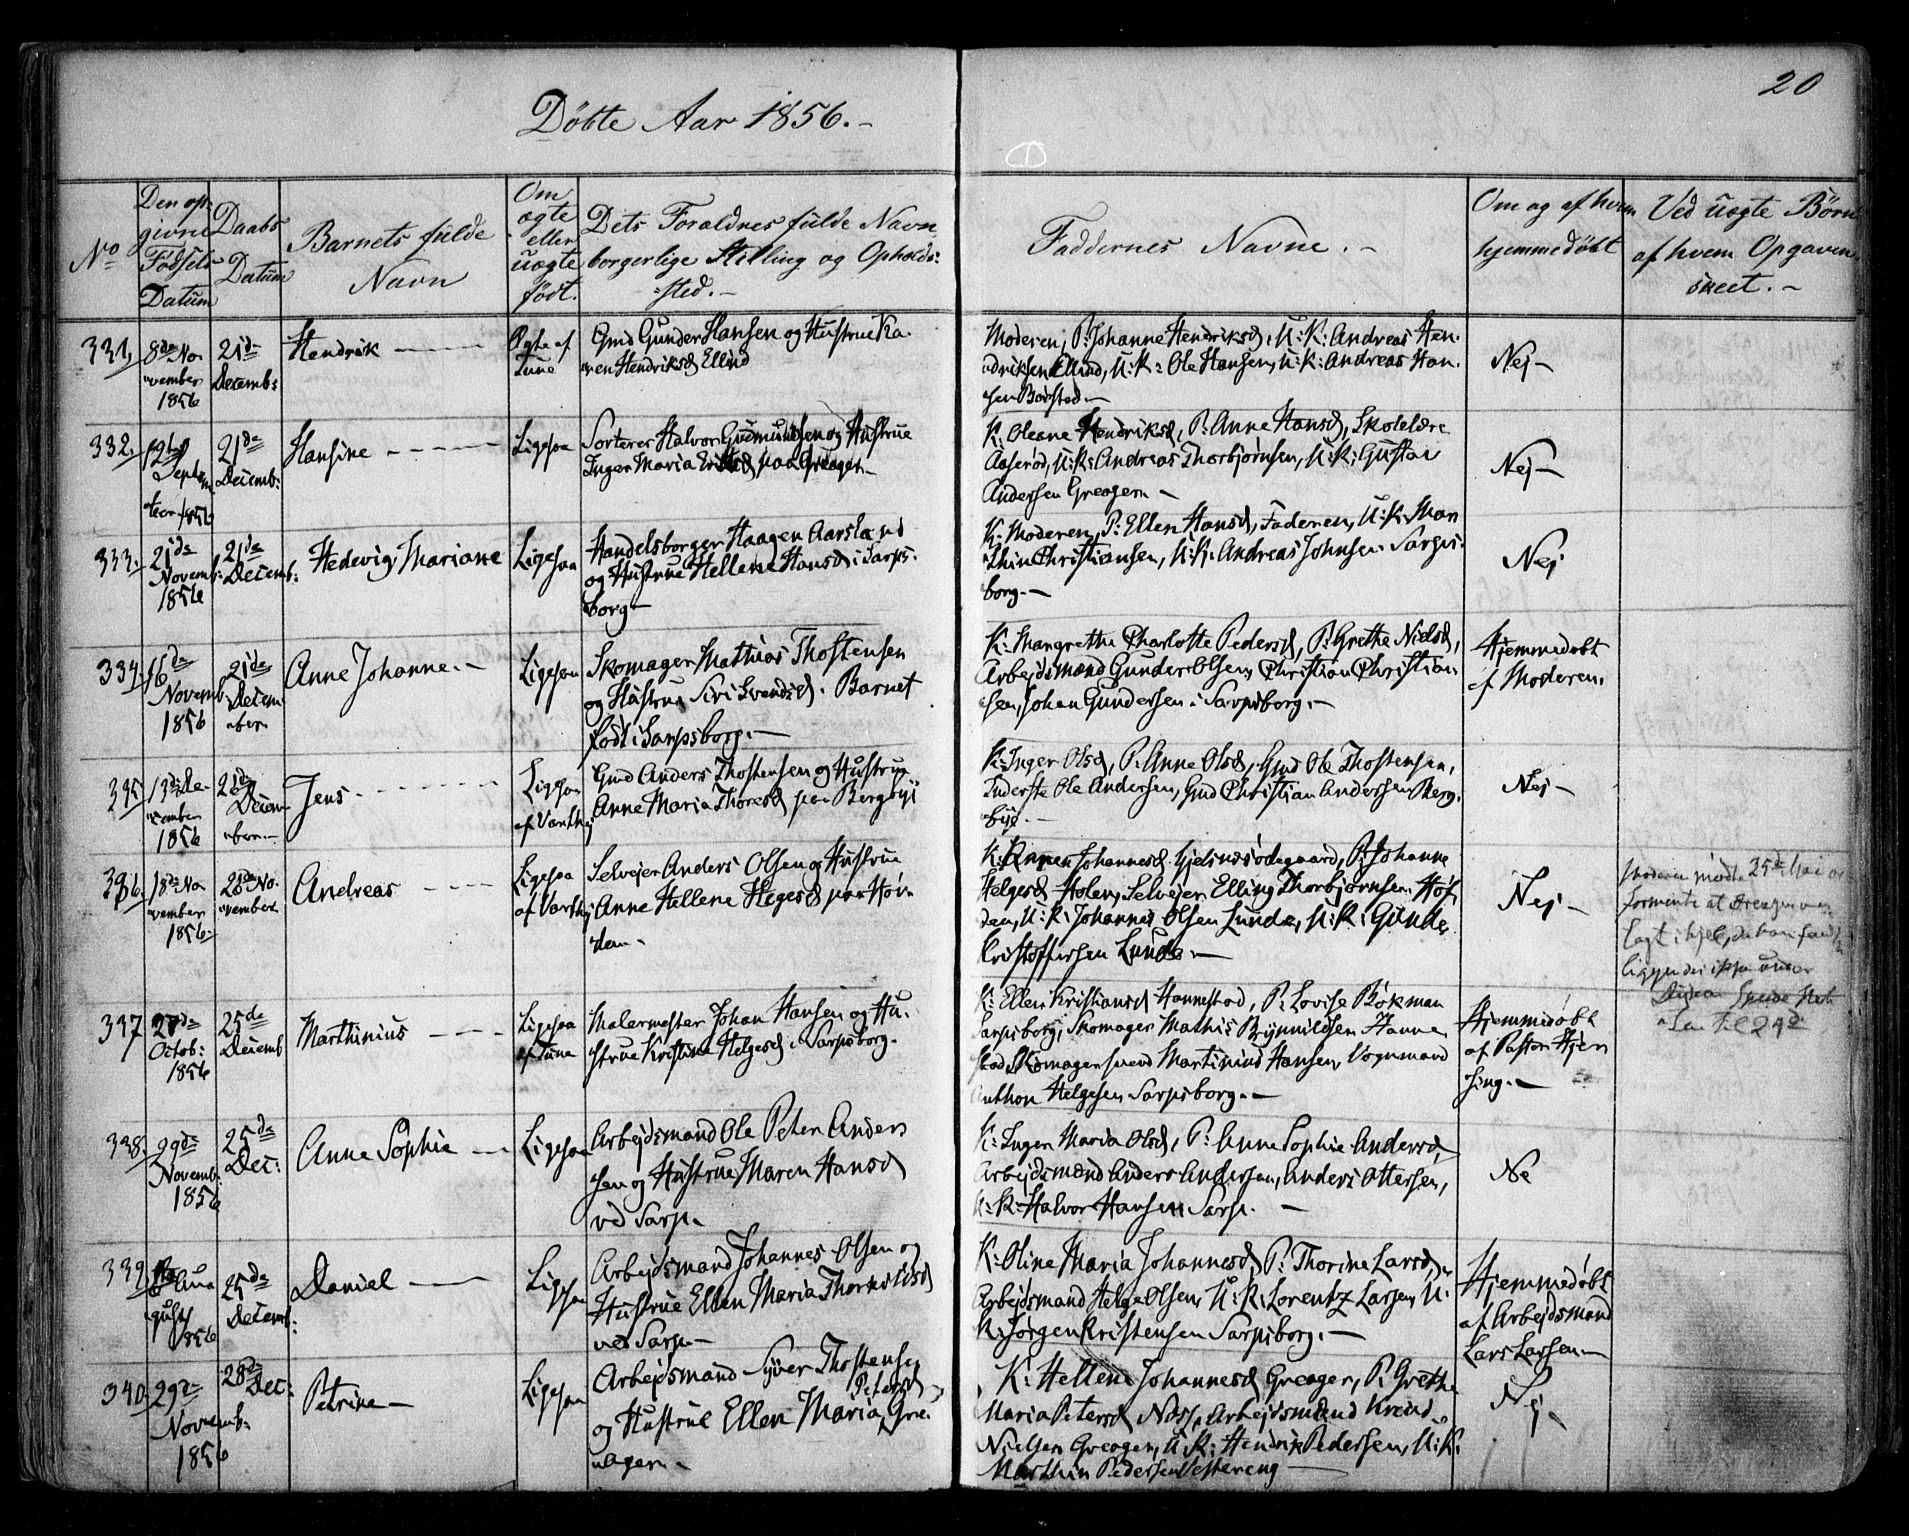 20
Döbte Aar 1856.-
No
Den op-
givne
Födsels
Datum
Daabs
Datum
Barnets fulde
Navn
Om
ægte
eller
uægte
födt.
Dets Foraldres fulde Navn,
borgerlige Stilling og Opholds:
sted.-
Faddernes Navne.-
Om og af hvem
hjemmedöbt
Ved uægte Börn
af hvem Opgaven
skeet.-
331,
8de No
vember
1856
21de
Decemb:
Hendrik
Ægte af
Tune
Gmd Gunder Hansen og Hustrue Ka
ren Hendriksd Ellind
Moderen, P: Johanne Hendriksd, U: K: Andreas Hen
driksen Ellind, U: K: Ole Hansen, U: K: Andreas Han
sen Börsted.-
Nej-
332.
Septem
ber 1856
21de
Decemb:
Hansine
Ligesaa
Sorterer Halvor Gudmundsen og Hustrue
Inger Maria paa Greager.-
K: Oleane Hendriksd, P: Anne Hansd, Skolelære
Aaserød, U: K: Andreas Thorbjørnsen, U: K: Gustav
Andersen Greagern.-
Nej-
333.
21de
Novemb:
1856
21de
Decemb:
Hedevig Mariane
Ligesaa
Handelsborger Haagen Aarsland
og Hustrue Hellene Hansd i Sarps
borg.-
K: Moderen, P: Ellen Hansd, Faderen, U: K: Mar
thin Christiansen, U: K: Andreas Johnsen Sarps
borg.-
Nej
334.
16de
Novemb
1856
21de
Decem
ber
Anne Johanne.-
Ligesaa
Skomager Mathias Thostensen
og Hustrue Siri Svendsd. Barnet
födt i Sarpsborg.-
K: Mangrethe Charlotte Pedersd, P: Grethe Nielsd,
Arbejdsmand Gunder Olsen, Christian Christian
sen, Johan Gundersen i Sarpsborg.-
Hjemmedøbt
af Moderen.
335.
13de De
cember
1856
21de
Decem
ber.-
Jens
Ligesaa
af Varthg
Gmd Anders Thostensen og Hustrue
Anne Maria Thoresd paa Bergbye
K: Inger Olsd, P: Anne Olsd, Gmd Ole Thostensen,
Inderste Ole Andersen, Gmd Christian Andersen Berg
bye.-
Nej-
336.
18de No
vember
1856.
No
vember
Andreas
Ligesaa
af Varthg
Selvejer Anders Olsen og Hustrue
Anne Hellene Hegesd paa Høv
den.-
K: Johannesd Gjelsnesødegaard, P: Johanne
Helgesd Holen, Selvejer Elling Thorbjørnsen Høf
den, U: K: Johannes Olsen Lunde, U: K: Gunde
Kristoffersen Lunde.-
Nej-
Moderen mødte 25de Mai
formente at Drengen
ligger
337
Octob:
1856
25de
Decemb
Marthinius
Ligesaa
af Tune
Malermester Johan Hansen og Hu
strue Kristine Helgesd i Sarpsborg.
K: Ellen Kristiansd Hannestad, P: Lovise Bökman
Sarpsborg, Skomager Mathis Brynnildsen Hanne
stad, Skomagersvend Martinius Hansen, Vognmand
Anthon Helgesen Sarpsborg.-
Hjemmedøbt
af Pastor Hjen
sing.-
338.
29de
Novemb:
1856
25de
Dec:
Anne Sophie
Ligesaa
Arbejdsmand Ole Peter Anders
sen og Hustrue Maren Hansd
ved Sarp.
K: Inger Maria Olsd, P: Anne Sophie Andersd,
Arbejdsmand Anders Andersen, Anders Ottersen,
U: K: Halvor Hansen Sarp.-
Ne
339
Au
gust
1856
25de
Decemb:
Daniel
Ligesaa
Arbejdsmand Johannes Olsen og
Hustrue Ellen Maria Thorkildsd
ved Sarp.-
K: Oline Maria Johannesd, P: Thorine Larsd,
Arbejdsmand Helge Olsen, U: K: Lorentz Larsen, U:
K: Jörgen Kristensen Sarpsborg.-
Hjemmedøbt
af Arbejdsmand
Lars Larsen-
340.
29de
Novemb.
1856
28de
Dec:
Petrine-
Ligesaa
Arbejdsmand Syver Thostensen
og Hustrue Ellen Maria Petersd, Gre
agern.-
K: Hellene Johannesd Greager, P: Grethe
Maria Petersd Næss, Arbejdsmand
Nielsen Greager, U: K: Hendrik Pedersen, U: K:
Marthin Pedersen Vestereng
Nej-